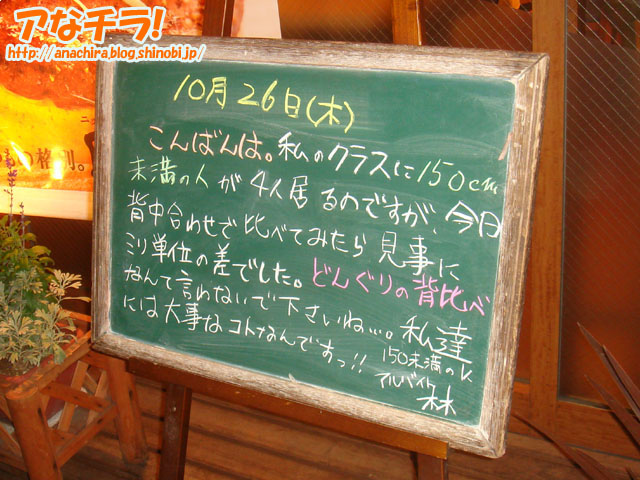 アなチラ!
http://anachira.blog.shinobi.jp/
の格別。
10月26日(木)
こんばんは。私のクラスに150cm
未満の人が4人居るのですが、今日
背中合わせで比べてみたら見事に
ミリ単位の差でした。どんぐりの背比べ
なんて言わないで下さいね…。私達
には大事なコトなんですっ!!
150未満の
アルバイト
林